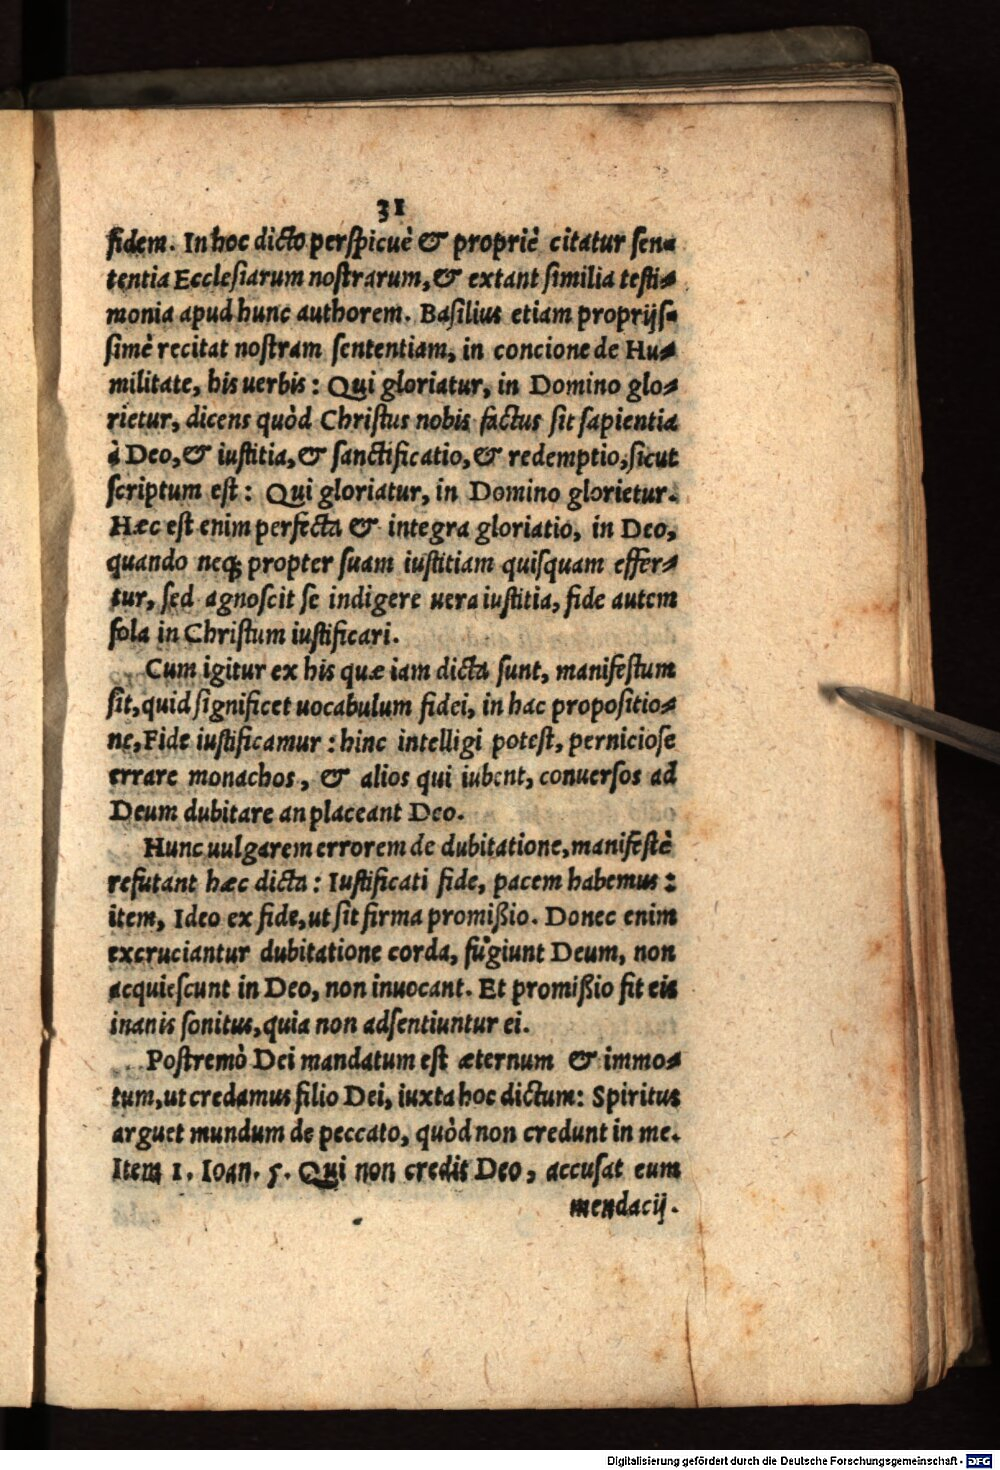 31
fidem. In hoc dicto perspicuè & propriè citatur sen-
tentia Ecclesiarum nostrarum, & extant similia testi-
monia apud hunc authorem. Basilius etiam proprijs-
simè recitat nostram sententiam, in concione de Hu-
militate, his uerbis: Qui gloriatur, in Domino glo-
rietur, dicens quòd Christus nobis factus sit sapientia
à Deo, & iustitia, & sanctificatio, & redemptio, sicut
scriptum est: Qui gloriatur, in Domino glorietur.
Hæc est enim perfecta & integra gloriatio, in Deo,
quando neq; propter suam iustitiam quisquam effer-
tur, sed agnoscit se indigere uera iustitia, fide autem
sola in Christum iustificari.
Cum igitur ex his quæ iam dicta sunt, manifestum
sit, quid significet uocabulum fidei, in hac propositio-
ne, Fide iustificamur: hinc intelligi potest, perniciose
errare monachos, & alios qui iubent, conuersos ad
Deum dubitare an placeant Deo.
Hunc uulgarem errorem de dubitatione, manifestè
refutant hæc dicta: Iustificati fide, pacem habemus:
item, Ideo ex fide, ut sit firma promißio. Donec enim
excruciantur dubitatione corda, fugiunt Deum, non
acquiescunt in Deo, non inuocant. Et promißio fit eis
inanis sonitus, quia non adsentiuntur ei.
Postremò Dei mandatum est æternum & immo-
tum, ut credamus filio Dei, iuxta hoc dictum: Spiritus
arguet mundum de peccato, quòd non credunt in me.
Item 1. Ioan. 5. Qui non credit Deo, accusat eum
mendacij.
Digitalisierung gefördert durch die Deutsche Forschungsgemeinschaft - DFG